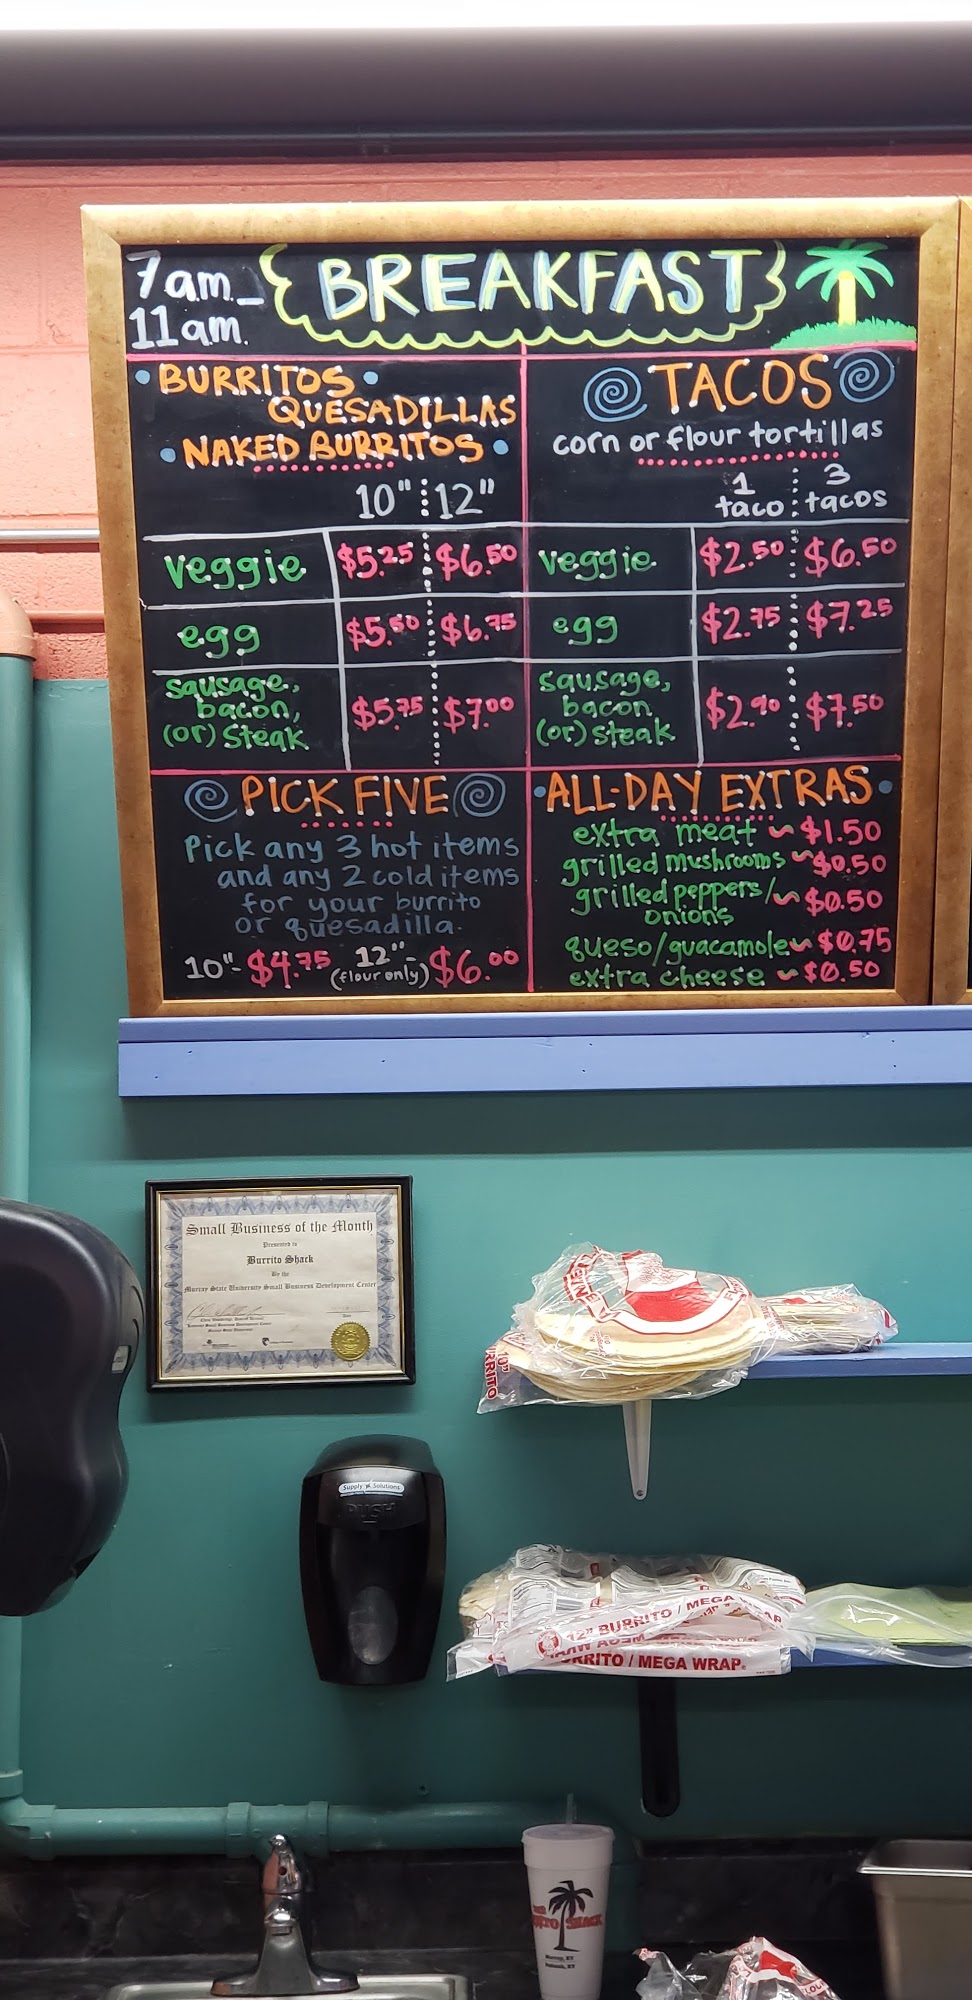 7am-
11am.
BREAKFAST
BURRITOS
QUESADILLAS
NAKED BURRITOS
10" 12"
veggie $5.25 $6.50
egg $5.50 $6.75
sausage,
bacon,
(or) steak $5.75 $7.00
TACOS
corn or flour tortillas
1 taco 3 tacos
veggie $2.50 $6.50
egg $2.75 $7.25
sausage,
bacon
(or) steak $2.90 $7.50
PICK FIVE
Pick any 3 hot items
and any 2 cold items
for your burrito
or quesadilla.
10"- $4.75 12"- (flour only) $6.00
ALL-DAY EXTRAS
extra meat ~ $1.50
grilled mushrooms ~ $0.50
grilled peppers/
onions ~ $0.50
queso/guacamole ~ $0.75
extra cheese ~ $0.50
Small Business of the Month
Presented to
Burrito Shack
By the
Murray State University Small Business Development Center
Supply Solutions
PUSH
12" BURRITO / MEGA WRAP
BURRITO / MEGA WRAP
SHACK